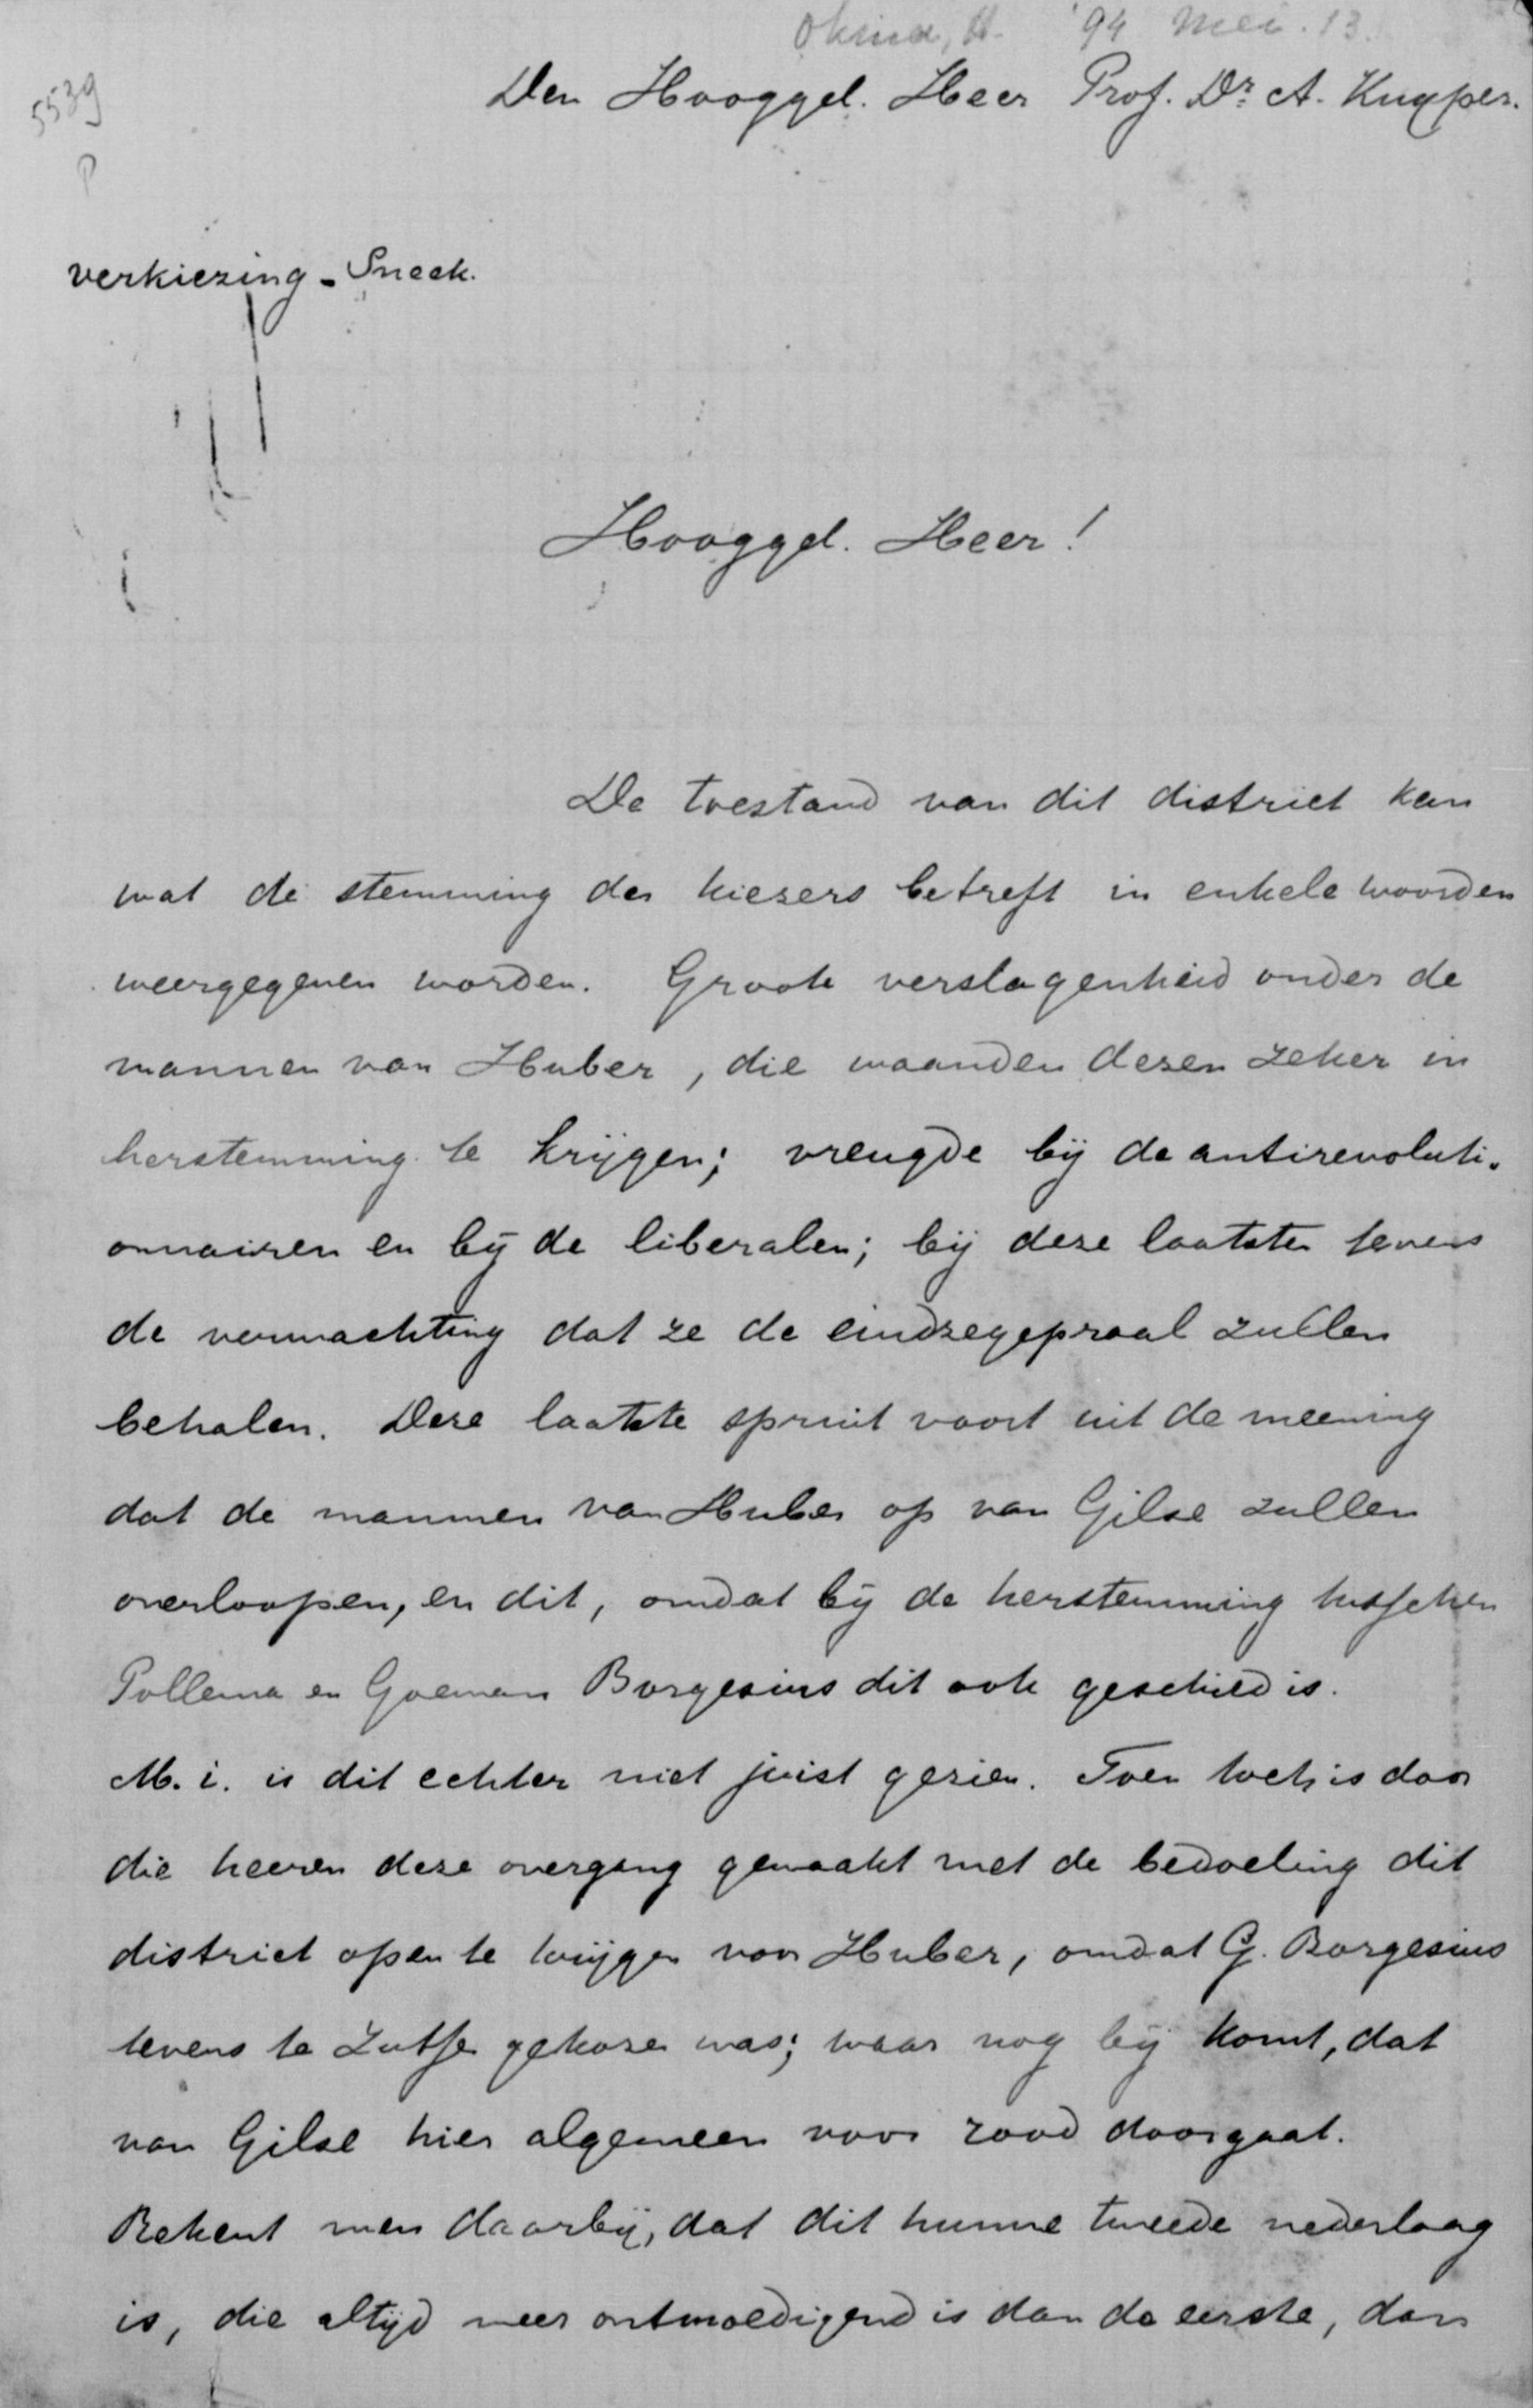 '94 Mei. 13.
5539
P
Den Hooggel. Heer Prof. Dr. A. Kuyper.
verkiezing - Sneek.
Hooggel. Heer!
De toestand van dit district kan
wat de stemming der kiezers betreft in enkele woorden
weergegeven worden. Groote verslagenheid onder de
mannen van Huber, die waanden dezen zeker in
herstemming te krijgen; vreugde bij de antirevoluti-
onnairen en bij de liberalen; bij deze laatsten tevens
de verwachting dat ze de eindzegepraal zullen
behalen. Deze laatste spruit voort uit de meening
dat de mannen van Huber op van Gilse zullen
overloopen, en dit, omdat bij de herstemming tusschen
Pollema en Goeman Borgesius dit ook geschied is.
M. i. is dit echter niet juist gezien. Toen toch is door
die heeren deze overgang gemaakt met de bedoeling dit
district open te krijgen voor Huber, omdat G. Borgesius
tevens te Zutfen gekozen was; waar nog bij komt, dat
van Gilse hier algemeen voor rood doorgaat.
Rekent men daarbij, dat dit hunne tweede nederlaag
is, die altijd meer ontmoedigend is dan de eerste, dan